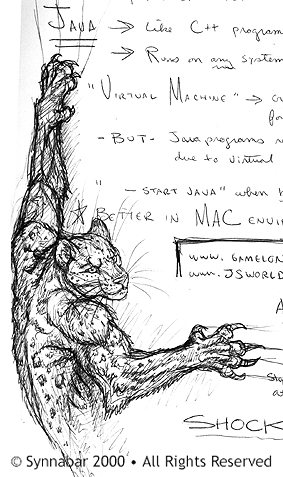 JAVA → LIKE C++ program
→ RUNS on any system
"VIRTUAL MACHINE" →
fo
-BUT- Java programs
due to virtual
" - START JAVA" when
* BETTER IN MAC ENVI
WWW. GAMELAN
WWW. JSWORLD
A
Sto
at
SHOCK
© Synnabar 2000 • All Rights Reserved